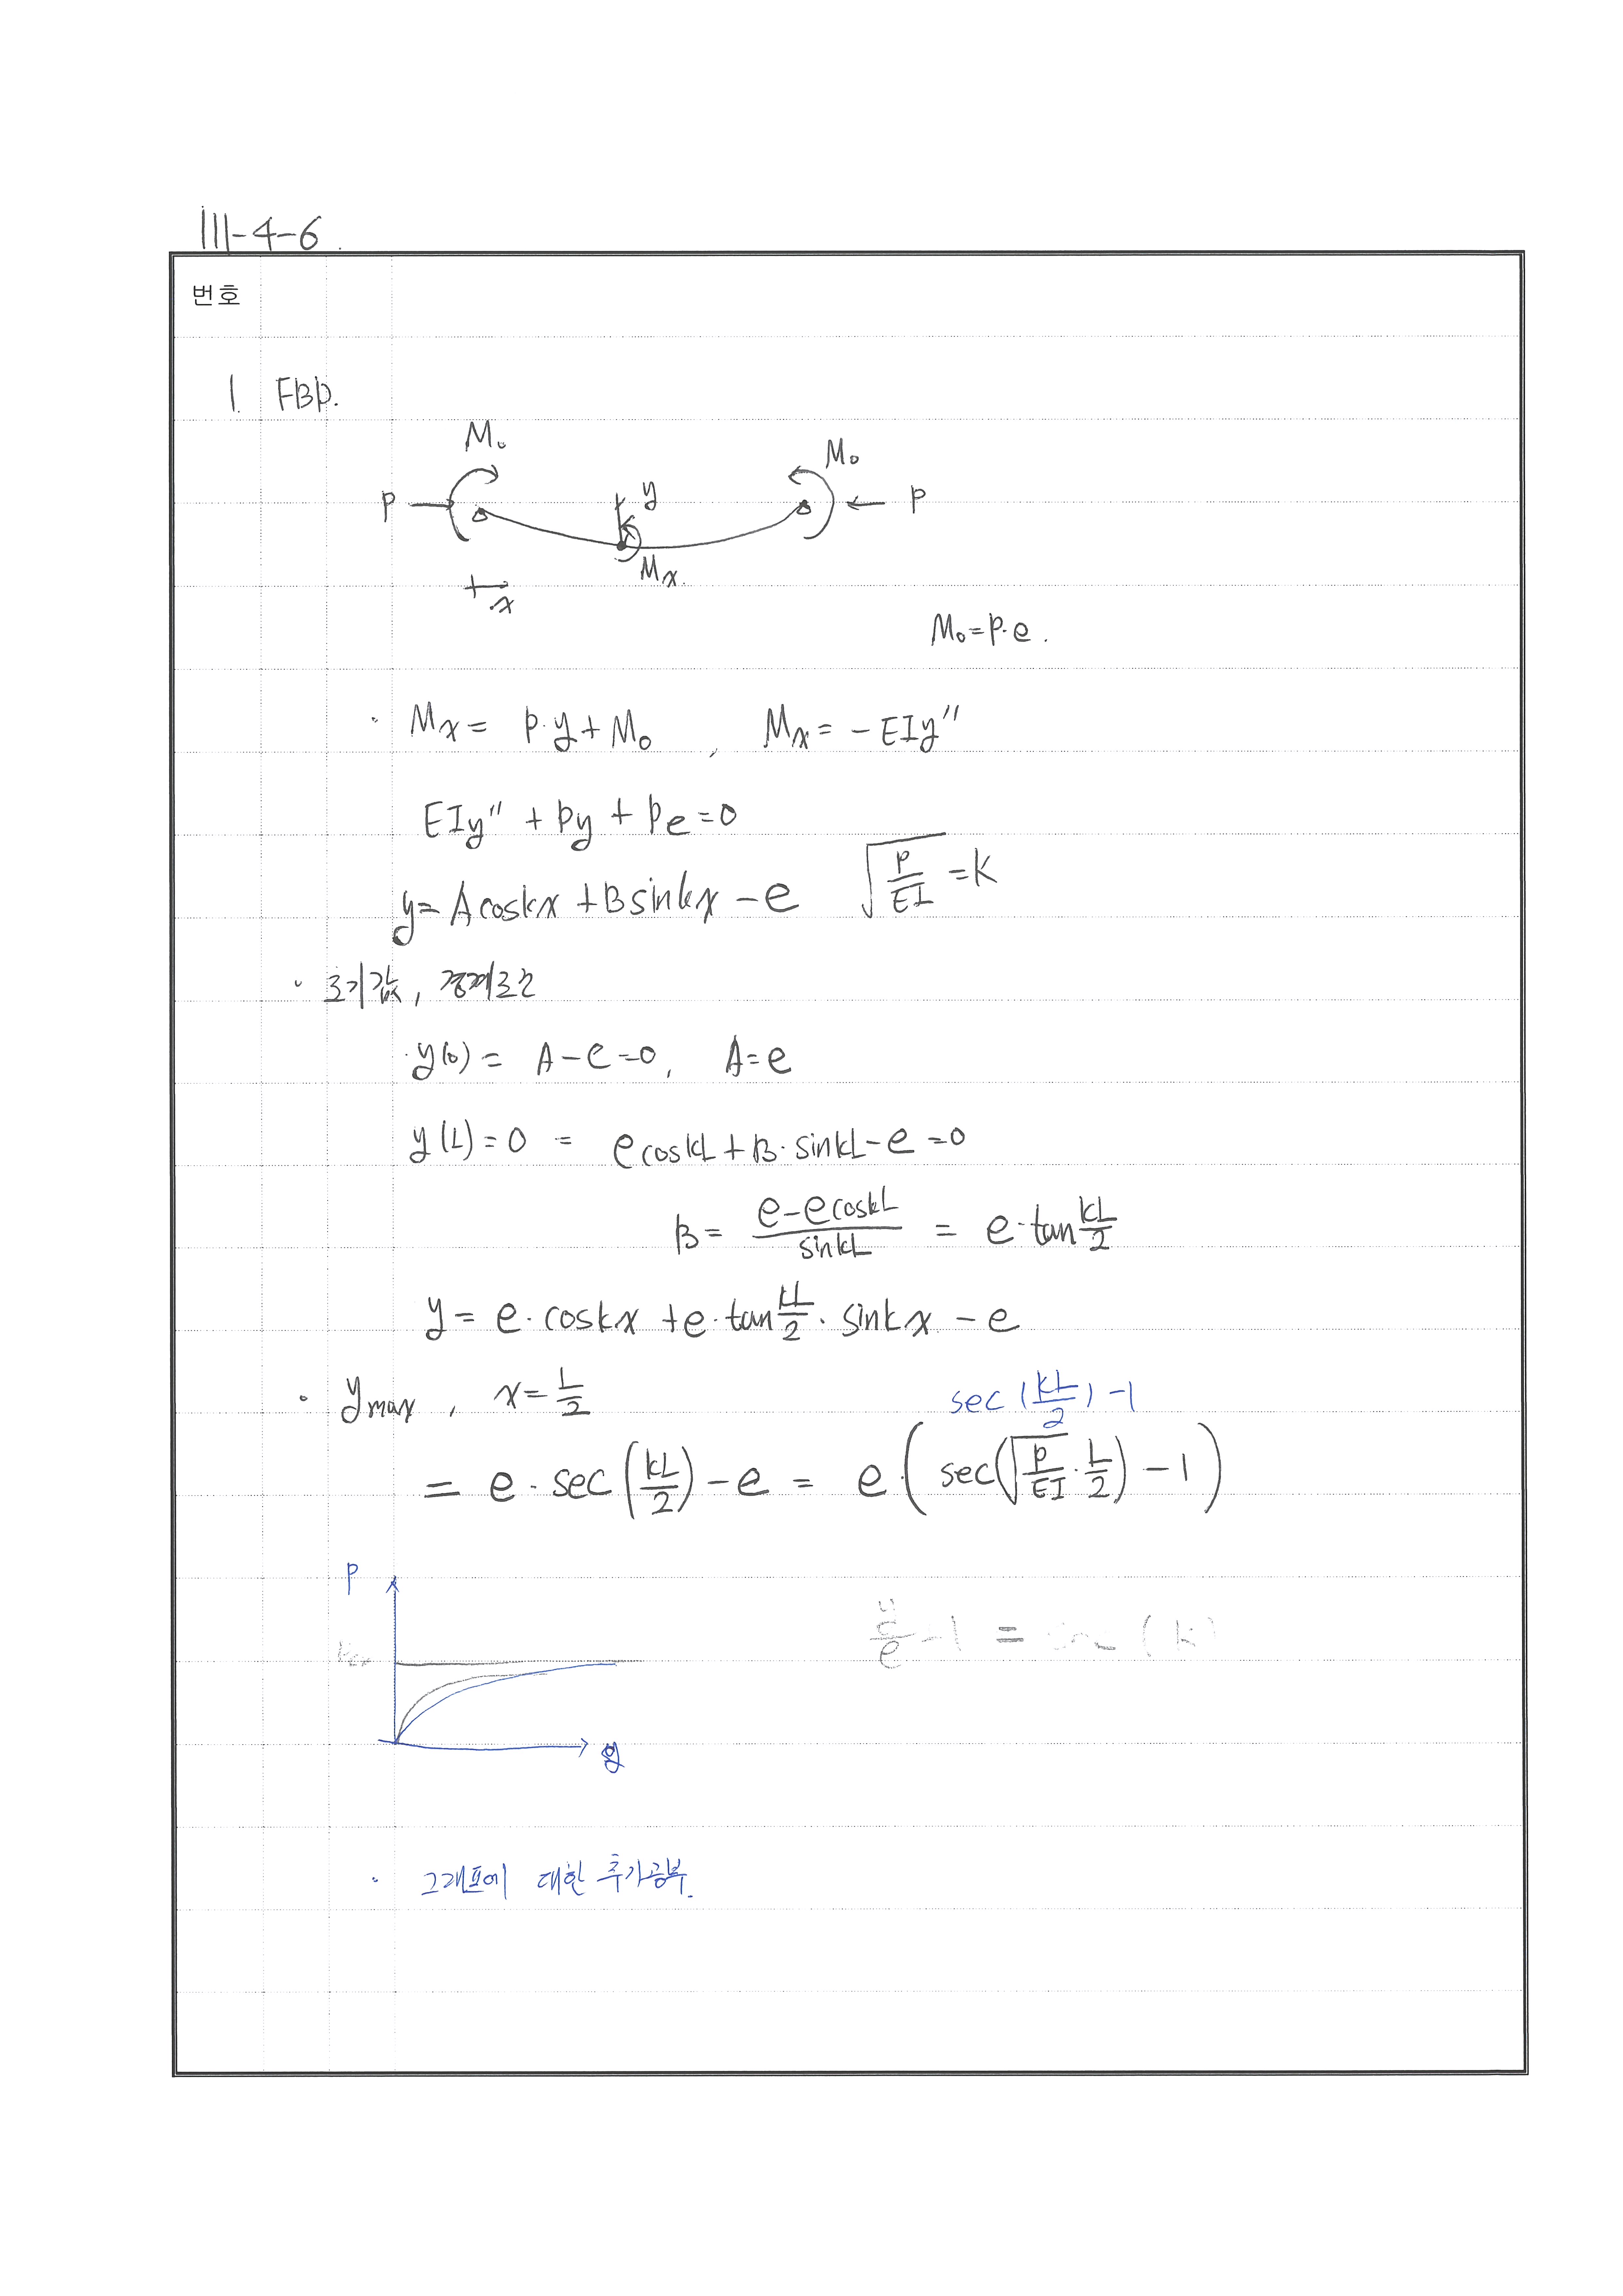 III-4-6.
번호
1. FBD.
M₀ M₀
P y P
Mx
x
M₀=P·e.
· Mx = P·y+M₀ , Mx = -EIy''
EIy'' + Py + Pe = 0
y = A coskx + B sinkx - e √(P/EI) = k
· 초기값, 경계조건
· y(0) = A-e=0, A=e
y(L)=0 = e coskL + B·sinkL - e = 0
B = (e-e coskL)/sinkL = e·tan kL/2
y = e·coskx + e·tan kL/2 · sinkx - e
· ymax , x = L/2
sec(kL/2) -1
= e·sec(kL/2) - e = e·(sec(√(P/EI)·L/2) - 1)
P
y
· 그래프에 대한 추가공부.